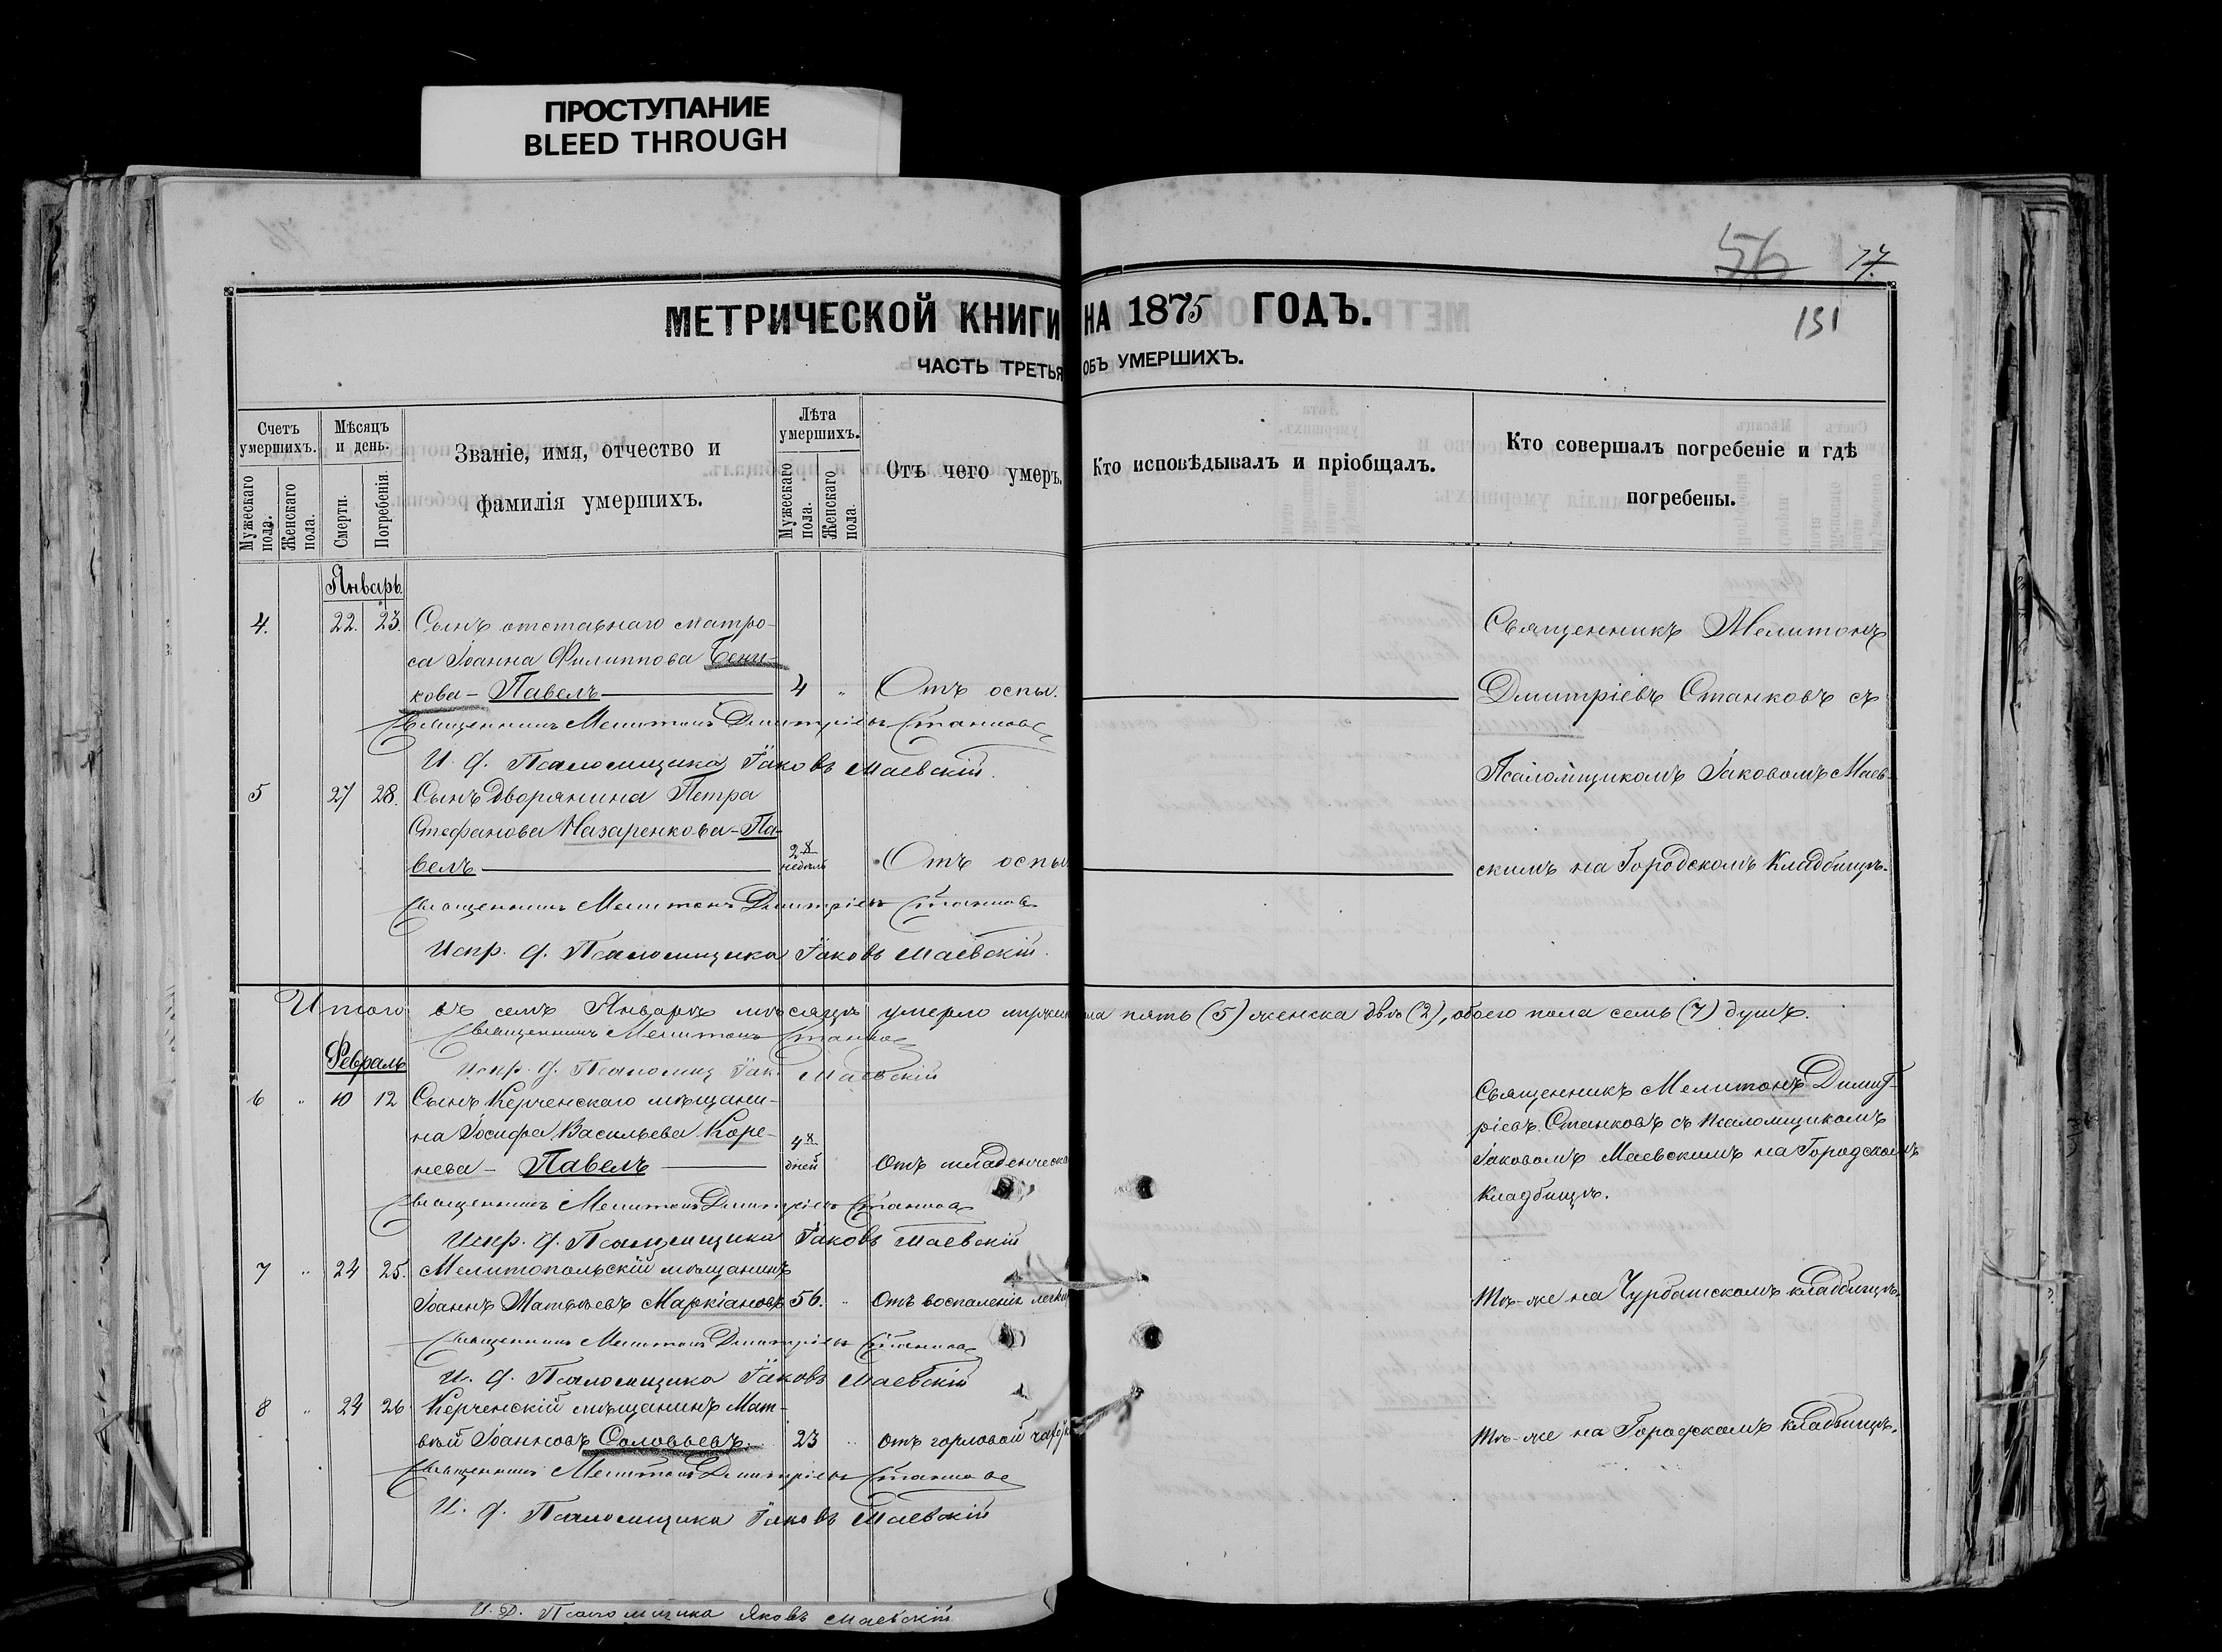 ПРОСТУПАНИЕ
BLEED THROUGH
56 77
МЕТРИЧЕСКОЙ КНИГИ НА 1875 ГОДЪ.
151
ЧАСТЬ ТРЕТЬЯ ОБЪ УМЕРШИХЪ.
Счетъ умершихъ.
Мужескаго пола.
Женскаго пола.
Мѣсяцъ и день.
Смерти.
Погребенія.
Званіе, имя, отчество и
фамилія умершихъ.
Лѣта умершихъ.
Мужескаго пола.
Женскаго пола.
Отъ чего умеръ.
Кто исповѣдывалъ и пріобщалъ.
Кто совершалъ погребеніе и гдѣ
погребены.
Январь.
4. 22. 23. Сынъ отставнаго матро-
са Іоанна Филиппова
кова - Павелъ 4 " Отъ оспы.
Священникъ Мелитонъ
Дмитріевъ Станковъ съ
Псаломщикомъ Іаковомъ Маев-
скимъ на Городскомъ Кладбищѣ.
Священникъ Мелитонъ Дмитріевъ Станковъ
И. д. Псаломщика Іаковъ Маевскій.
5 27 28. Сынъ дворянина Петра
Стефанова Назаренкова - Па-
велъ 2 8 недѣль Отъ оспы
Священникъ Мелитонъ Дмитріевъ Станковъ
Испр. д. Псаломщика Іаковъ Маевскій.
Итого въ семъ Январѣ мѣсяцѣ умерло мужеска пола пять (5) женска двѣ (2), обоего пола семь (7) душъ.
Священникъ Мелитонъ Станковъ
Испр. д. Псаломщ Іак. Маевскій
Февраль
6 " 10 12 Сынъ Керченскаго мѣщани-
на Іосифа Васильева Коре-
нева - Павелъ 4 8 дней Отъ младенческа
Священникъ Мелитонъ Димит-
ріевъ Станковъ съ Псаломщикомъ
Іаковомъ Маевскимъ на Городскомъ
Кладбищѣ.
Священникъ Мелитонъ Дмитріевъ Станковъ
Испр. д. Псаломщика Іаковъ Маевскій
7 " 24 25. Мелитопольскій мѣщанинъ
Іоаннъ Матѳеевъ Маркіановъ 56. " Отъ воспаленія легк
Тѣ-же на Чурбашскомъ кладбищѣ.
Священникъ Мелитонъ Дмитріевъ Станковъ
И. д. Псаломщика Іаковъ Маевскій
8 " 24 26 Керченскій мѣщанинъ Мат-
вѣй Іоанновъ Соловьевъ. 23 " Отъ горловой
Тѣ-же на Городскомъ кладбищѣ.
Священникъ Мелитонъ Дмитріевъ Станковъ
И. д. Псаломщика Іаковъ Маевскій
И. Д. Псаломщика Яковъ Маевскій